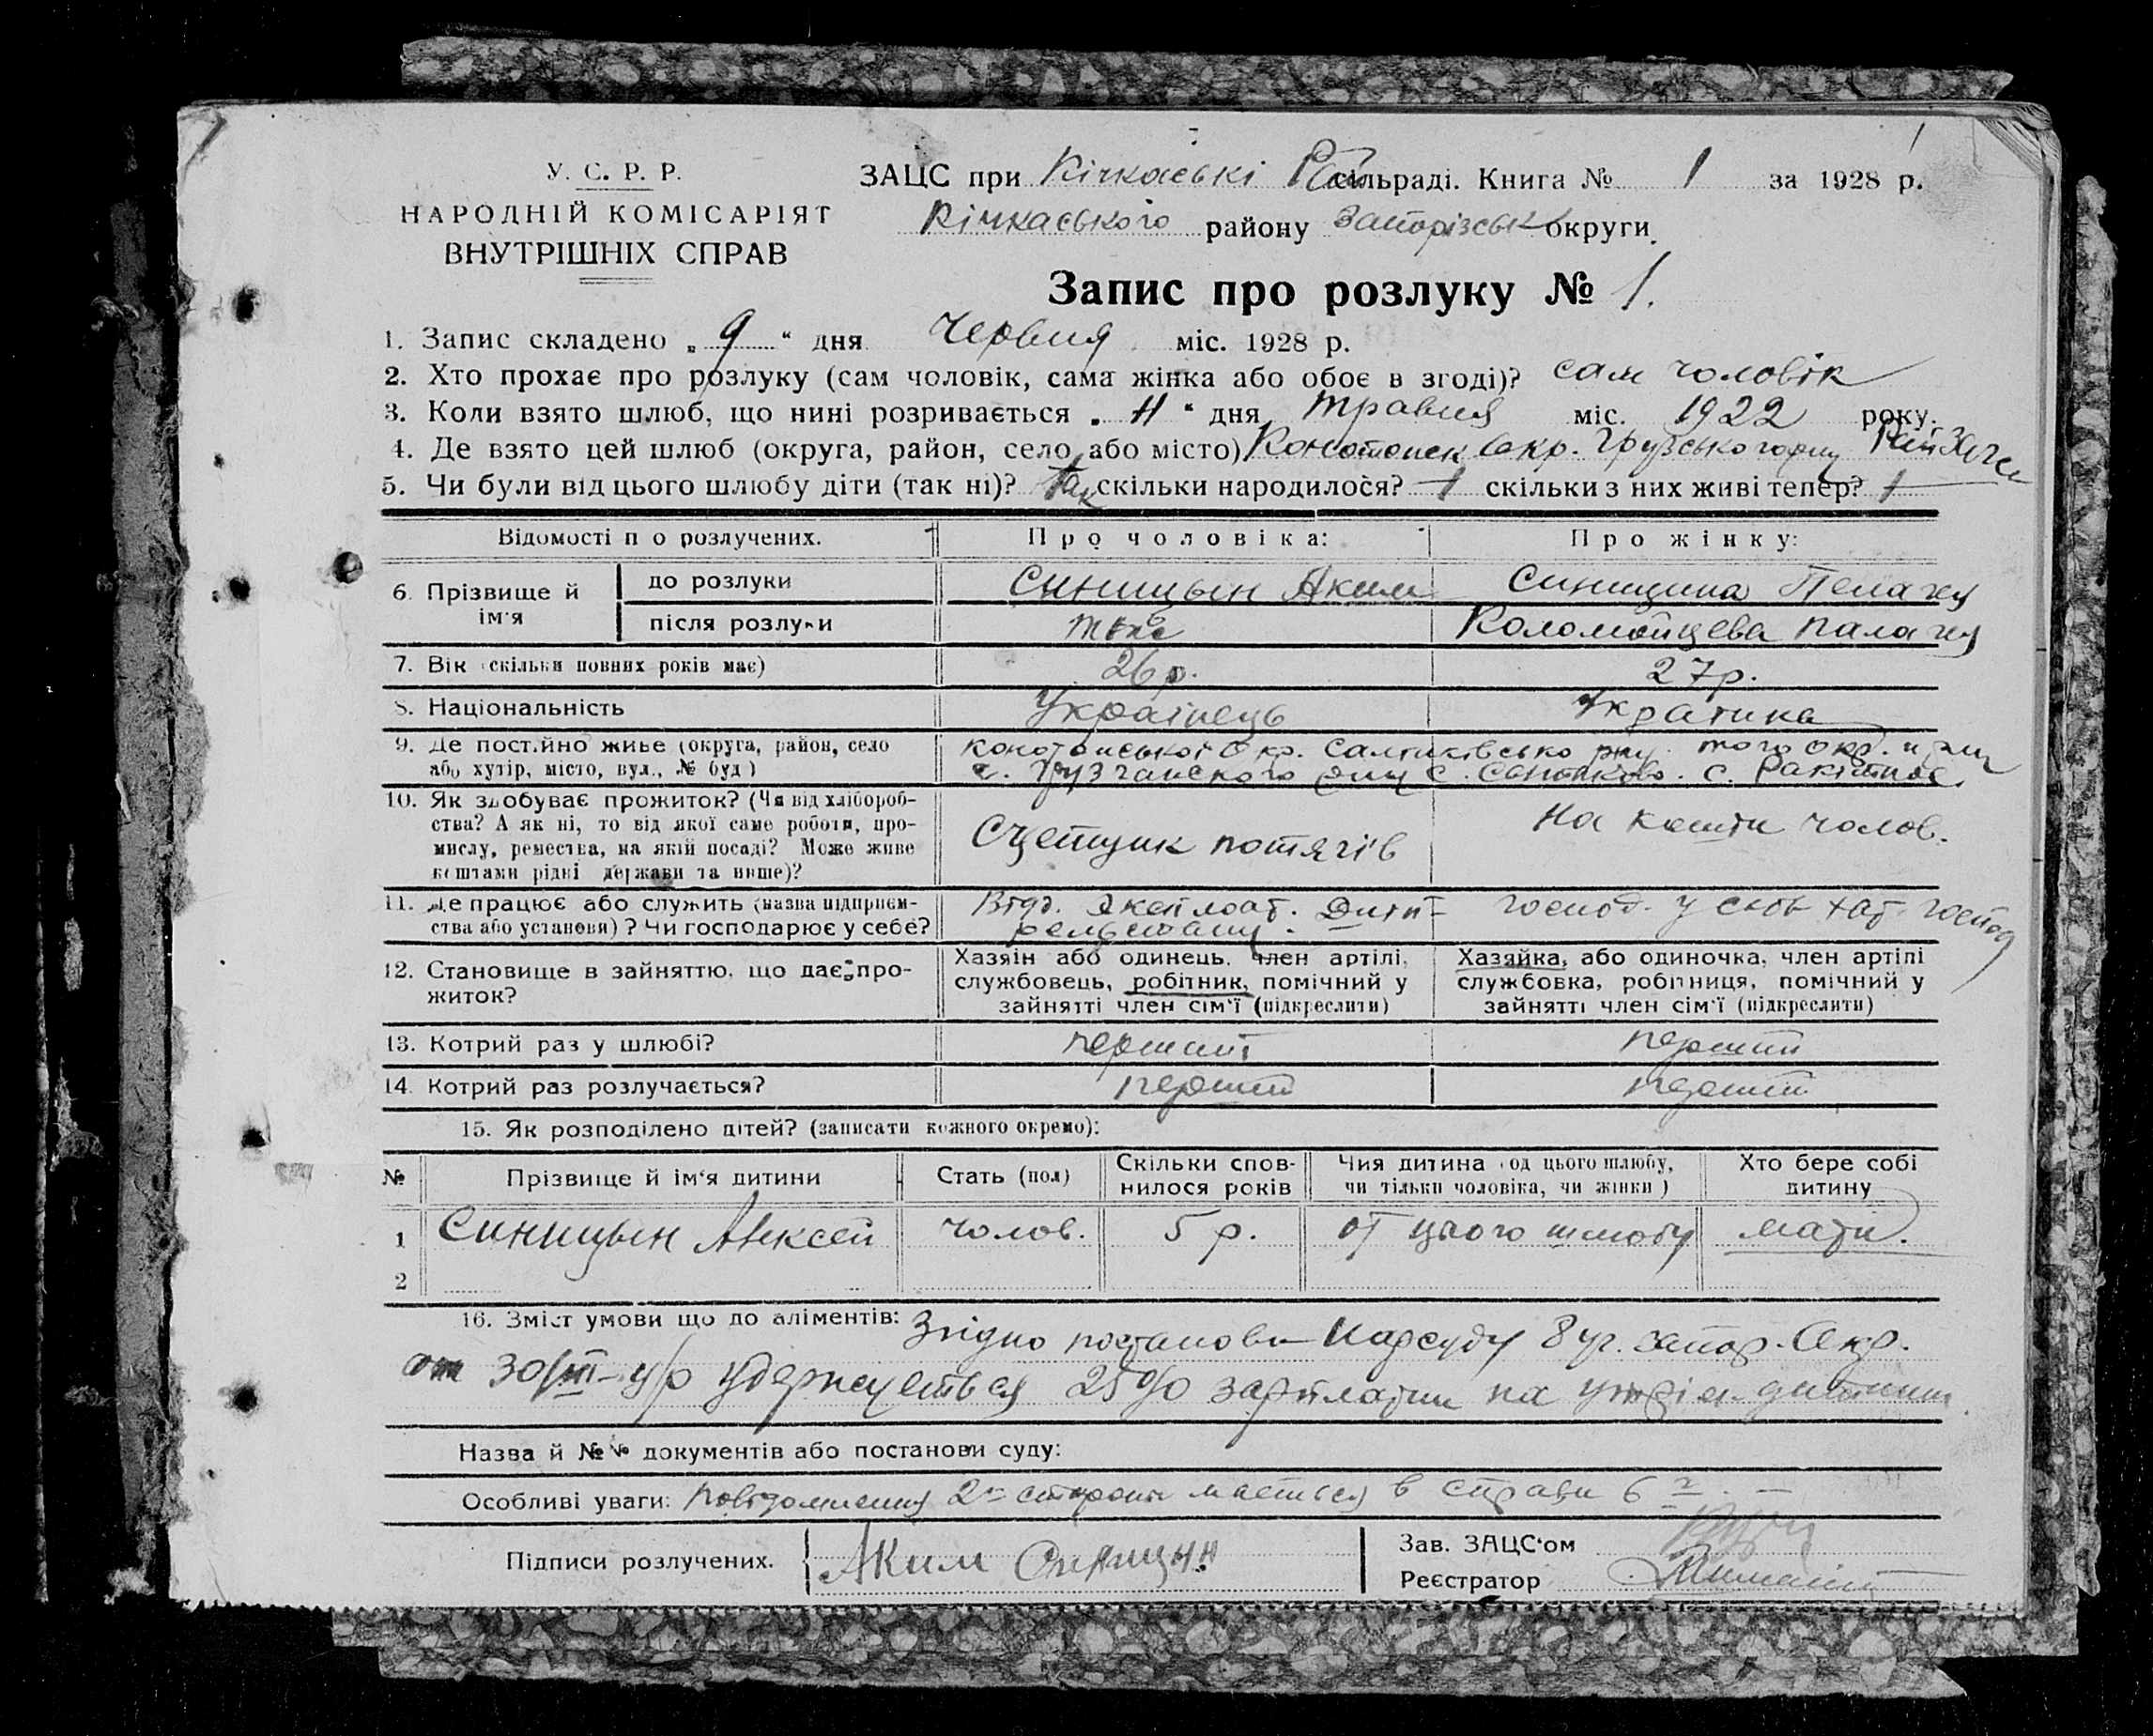 1
У. С. Р. Р.
НАРОДНІЙ КОМІСАРІЯТ
ВНУТРІШНІХ СПРАВ
ЗАЦС при Кічкаські Рай сільраді. Книга № 1 за 1928 р.
Кічкаського району Запорізськ округи.
Запис про розлуку № 1.
1. Запис складено „ 9 “ дня Червня міс. 1928 р.
2. Хто прохає про розлуку (сам чоловік, сама жінка або обоє в згоді)? сам чоловік
3. Коли взято шлюб, що нині розривається „ 11 “ дня травня міс. 1922 року.
4. Де взято цей шлюб (округа, район, село або місто) Конотопск Окр. Грузського рну
5. Чи були від цього шлюбу діти (так ні)? так скільки народилося? 1 скільки з них живі тепер? 1
Відомості по розлучених. Про чоловіка: Про жінку:
6. Прізвище й ім'я до розлуки Синицын Аким Синицина Пелагея
після розлуки теж Коломойцева Палагея
7. Вік (скільки повних років має) 26 р. 27 р.
8. Національність Українець Українка
9. Де постійно живе (округа, район, село
або хутір, місто, вул., № буд.)
Конотопської Окр. того Окр.
с. Ракітное.
10. Як здобуває прожиток? (Чи від хліборобства?
А як ні, то від якої саме роботи, промислу,
ремества, на якій посаді? Може живе
коштами рідні держави та инше)?
Сцепщик потягів На кошти чолов.
11. Де працює або служить (назва підприємства
або установи)? Чи господарює у себе?
Відд. Експлоат.
12. Становище в зайняттю, що дає прожиток?
Хазяїн або одинець, член артілі,
службовець, робітник, помічний у
зайнятті член сім'ї (підкреслити)
Хазяйка, або одиночка, член артілі
службовка, робітниця, помічний у
зайнятті член сім'ї (підкреслити)
13. Котрий раз у шлюбі? перший перший
14. Котрий раз розлучається? перший перший
15. Як розподілено дітей? (записати кожного окремо):
№ Прізвище й ім'я дитини Стать (пол) Скільки сповнилося років Чия дитина (од цього шлюбу, чи тільки чоловіка, чи жінки) Хто бере собі дитину
1 Синицын Алексей чолов. 5 р. от цього шлюбу мати.
2
16. Зміст умови що до аліментів: Згідно постанови Нарсуду 8 уч. Запор. Окр.
от 30/III у/р удержується 25% зарплатии на утрім. дитини
Назва й №№ документів або постанови суду:
Особливі уваги: Повідомлення 2й сторони мається в справи
Підписи розлучених. Аким Синицын
Зав. ЗАЦС'ом
Реєстратор